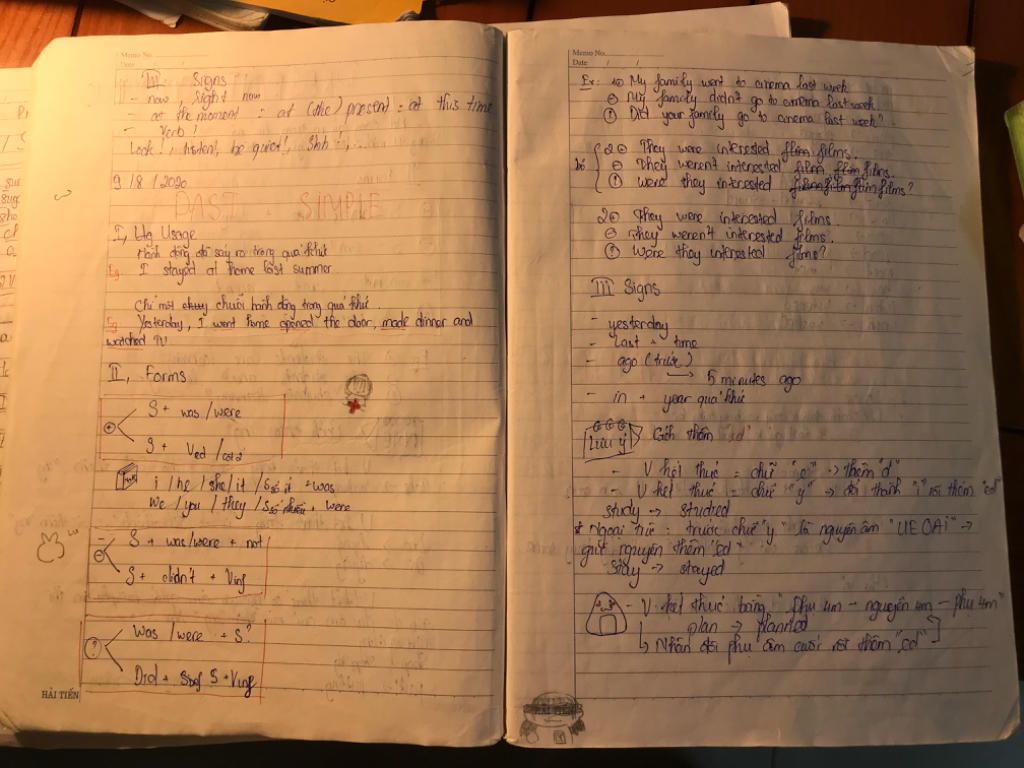 Memo No.
Date / /
III Signs
- now, right now
- at the moment = at (the) present = at this time
- Verb!
Look!, listen!, be quiet!, Shh!,...
9/8/2020
PAST SIMPLE
I, Usage
Hành động đã xảy ra trong quá khứ
Eg I stayed at home last summer
Chỉ một chuỗi hành động trong quá khứ.
Eg Yesterday, I went home opened the door, made dinner and
watched TV
II, Forms
+ S + was/were
S + Ved/cột 2
i/he/she/it/S số ít + was
We/you/they/S số nhiều + were
- S + was/were + not
S + didn't + Vinf
? Was/were + S?
Did + S + Vinf
HẢI TIẾN
Memo No.
Date / /
Ex: 1 + My family went to cinema last week
- My family didn't go to cinema last week.
? Did your family go to cinema last week?
2 + They were interested film films.
- They weren't interested film, films.
? Were they interested films?
2 + They were interested films.
- They weren't interested films.
? Were they interested films?
III Signs
- yesterday
- last + time
- ago (trước)
→ 5 minutes ago
- in + year quá khứ
Lưu ý Cách thêm "ed"
- V kết thúc = chữ "e" → thêm "d"
- V kết thúc = chữ "y" → đổi thành "i" rồi thêm "ed"
study → studied
* Ngoại trừ: trước chữ "y" là nguyên âm "UEOAi" →
giữ nguyên thêm "ed"
Stay → stayed
- V kết thúc bằng "phụ âm - nguyên âm - phụ âm"
plan → planned
↳ Nhân đôi phụ âm cuối rồi thêm "ed"